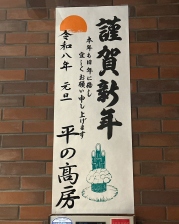 謹賀新年
本年も旧年に倍し
宜しくお願い申し上げます
令和八年 元旦
平の髙房